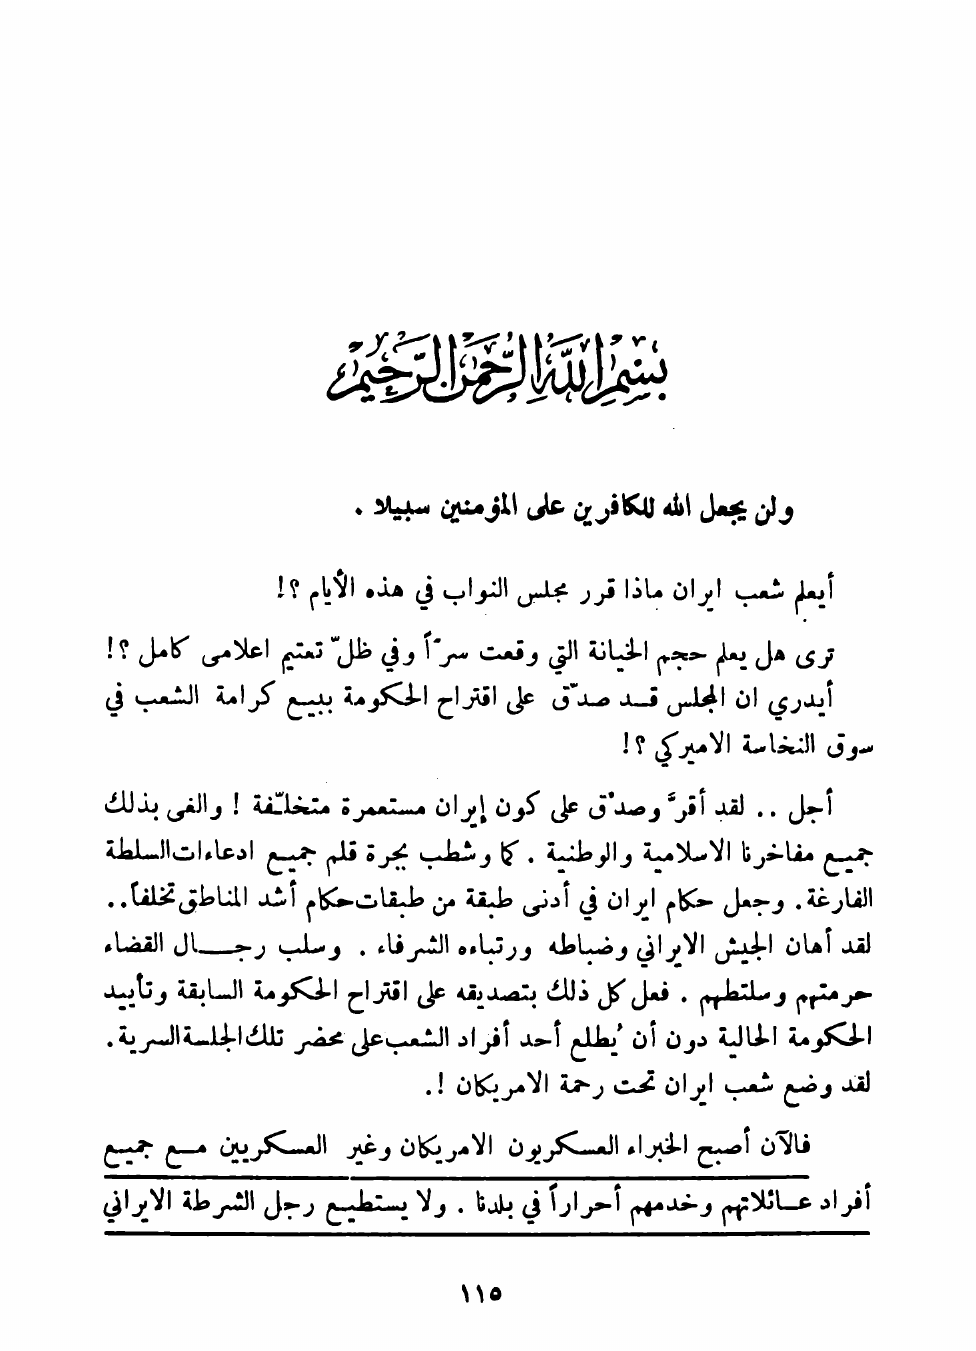 بسم الله الرحمن الرحيم
ولن يجعل الله للكافرين على المؤمنين سبيلا .
أيعلم شعب ايران ماذا قرر مجلس النواب في هذه الأيام ؟!
ترى هل يعلم حجم الخيانة التي وقعت سرّاً وفي ظلّ تعتيم اعلامى كامل ؟!
أيدري ان المجلس قد صدّق على اقتراح الحكومة ببيع كرامة الشعب في
سوق النخاسة الاميركي ؟!
أجل .. لقد أقرَّ وصدّق على كون إيران مستعمرة متخلّفة ! والغى بذلك
جميع مفاخرنا الاسلامية والوطنية . كما وشطب بجرة قلم جميع ادعاءات السلطة
الفارغة . وجعل حكام ايران في أدنى طبقة من طبقات حكام أشد المناطق تخلفاً ..
لقد أهان الجيش الايراني وضباطه ورتباءه الشرفاء . وسلب رجال القضاء
حرمتهم وسلتطهم . فعل كل ذلك بتصديقه على اقتراح الحكومة السابقة وتأييد
الحكومة الحالية دون أن ُيطلع أحد أفراد الشعب على محضر تلك الجلسة السرية .
لقد وضع شعب ايران تحت رحمة الامريكان !.
فالآن أصبح الخبراء العسكريون الامريكان وغير العسكريين مع جميع
أفراد عائلاتهم وخدمهم أحراراً في بلدنا . ولا يستطيع رجل الشرطة الايراني
١١٥